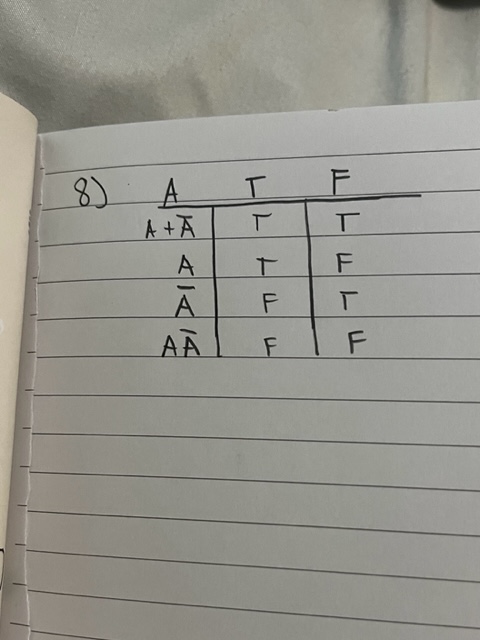 8) A T F
A + Ā T T
A T F
Ā F T
AĀ F F